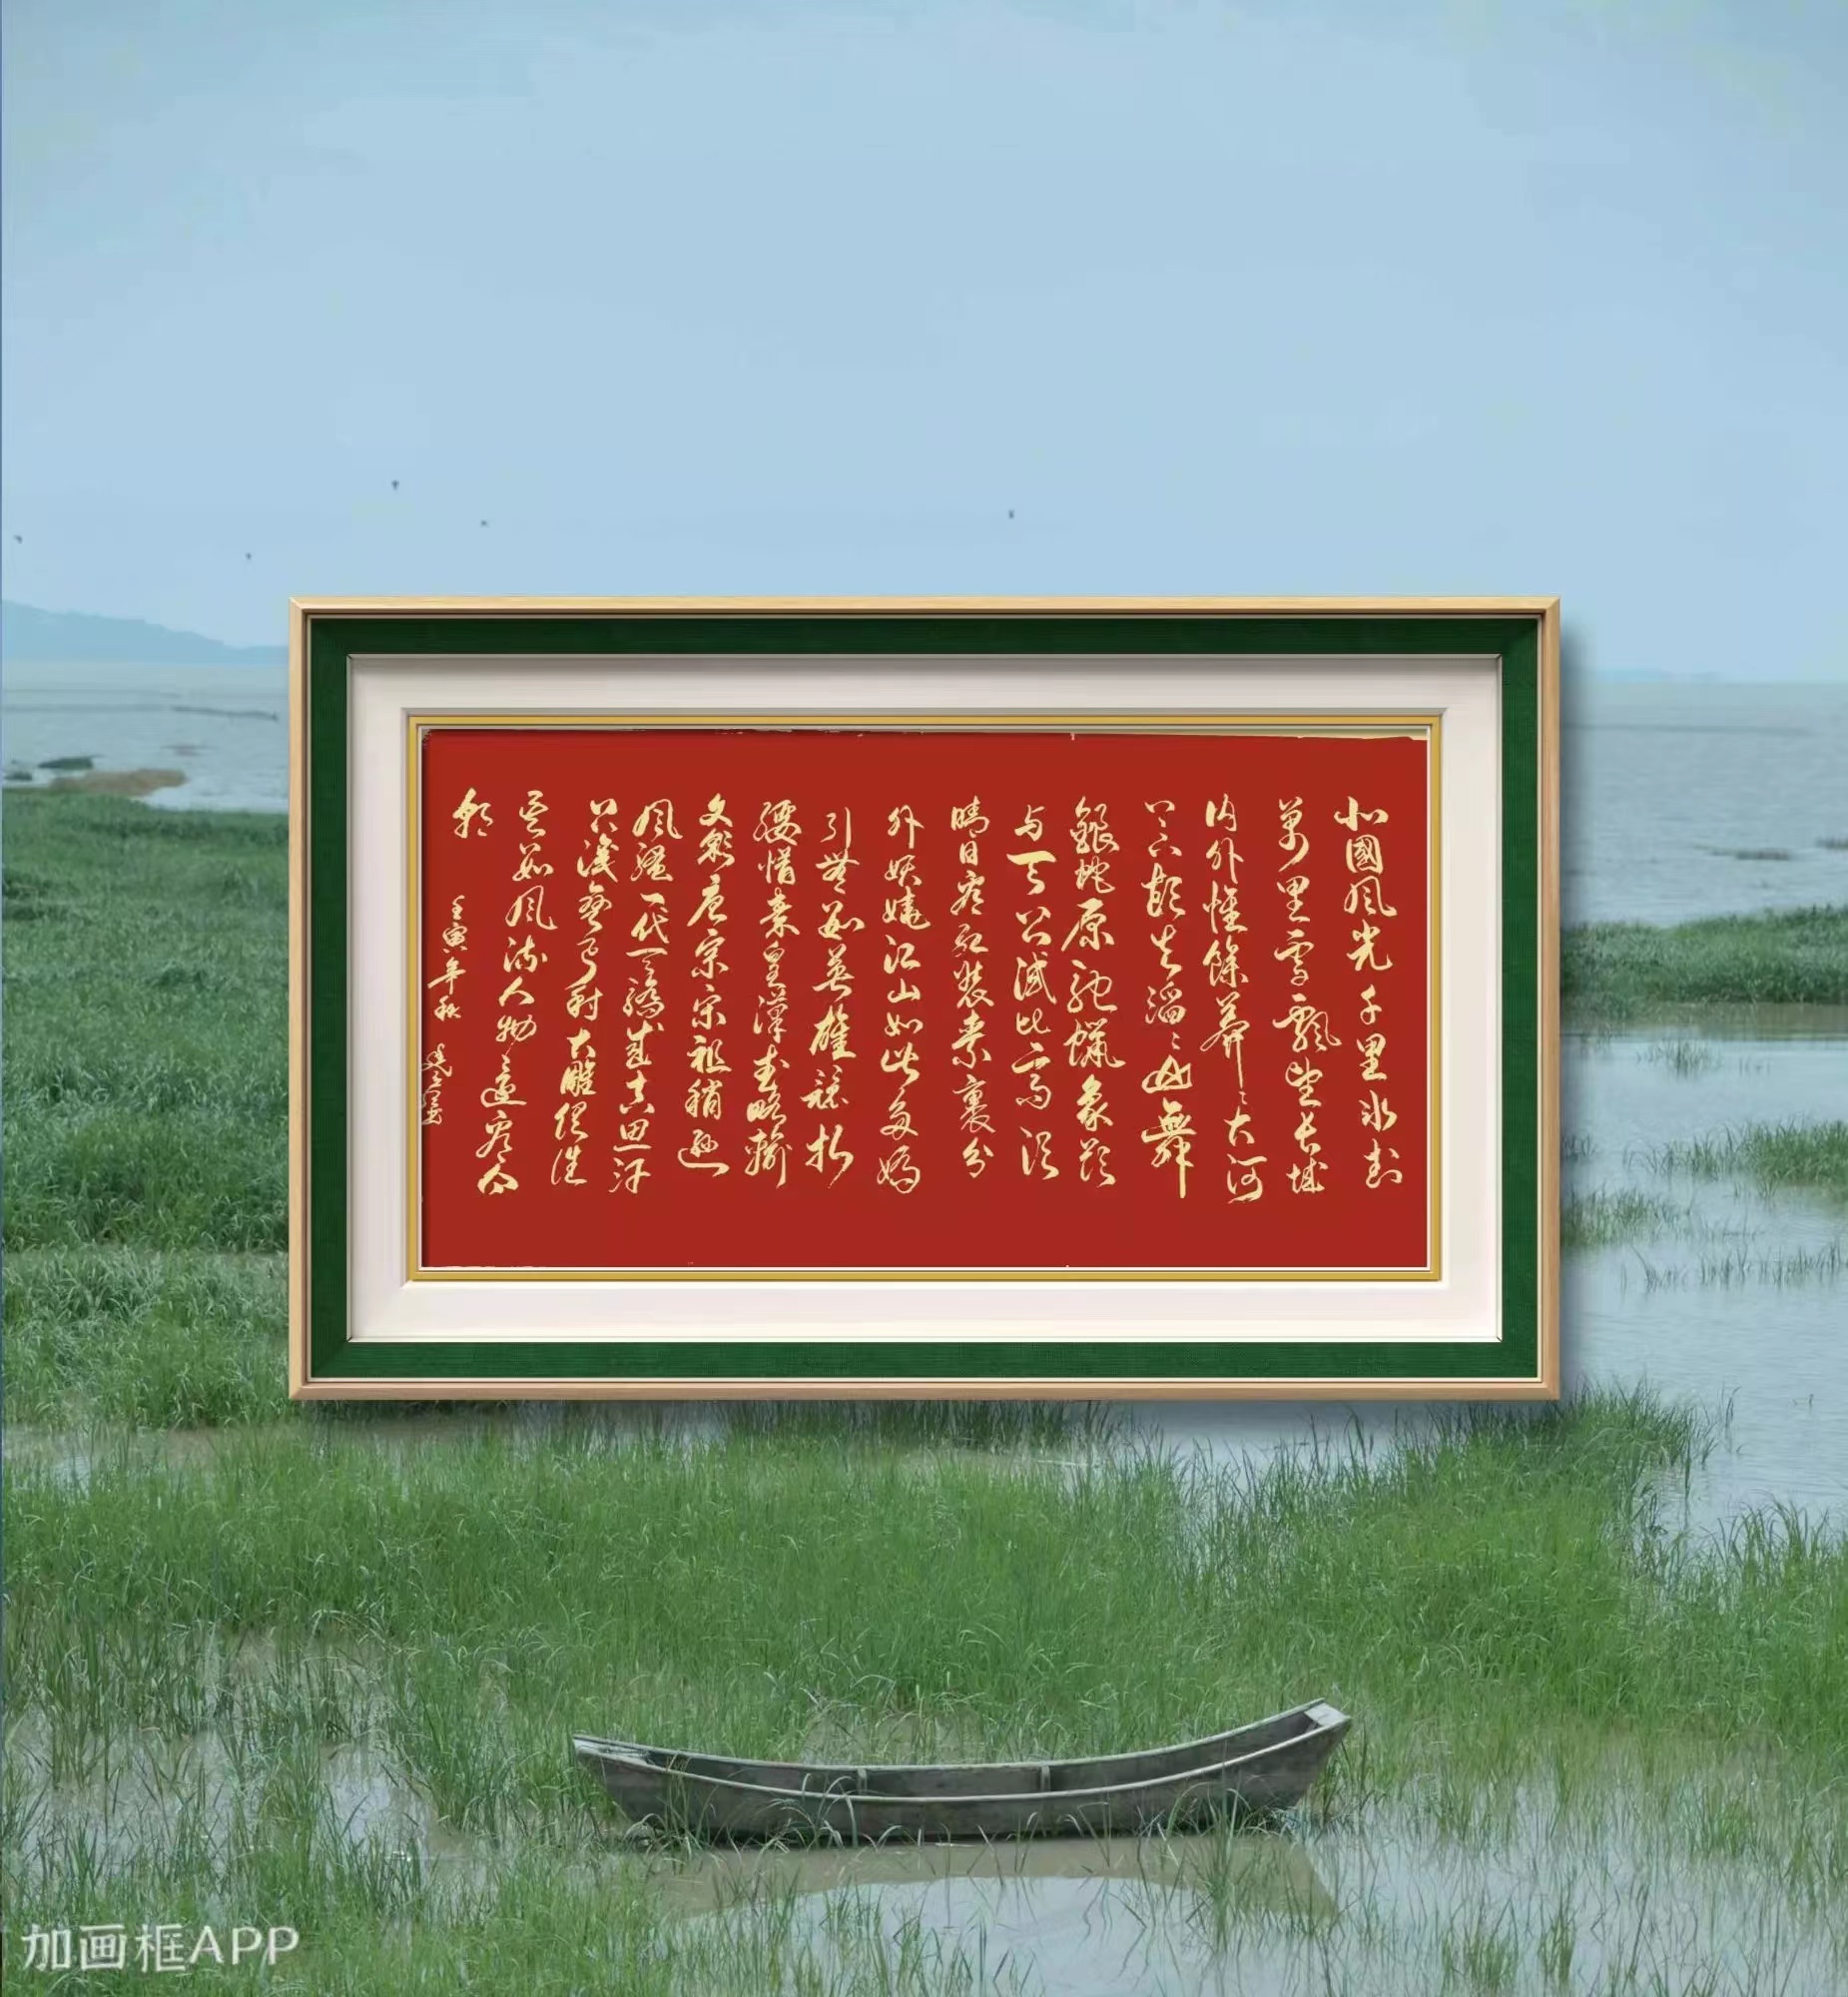 北國风光千里冰封
萬里雪飄望长城
内外惟餘莽〻大河
上下頓失滔〻山舞
銀蛇原馳蜡象欲
与天公试比高须
晴日看红装素裹分
外妖娆江山如此多娇
引無数英雄竞折
腰惜秦皇漢武略输
文彩唐宗宋祖稍逊
风骚一代天骄成吉思汗
只識弯弓射大雕俱往
矣数风流人物還看今
朝
壬寅年秋
加画框APP